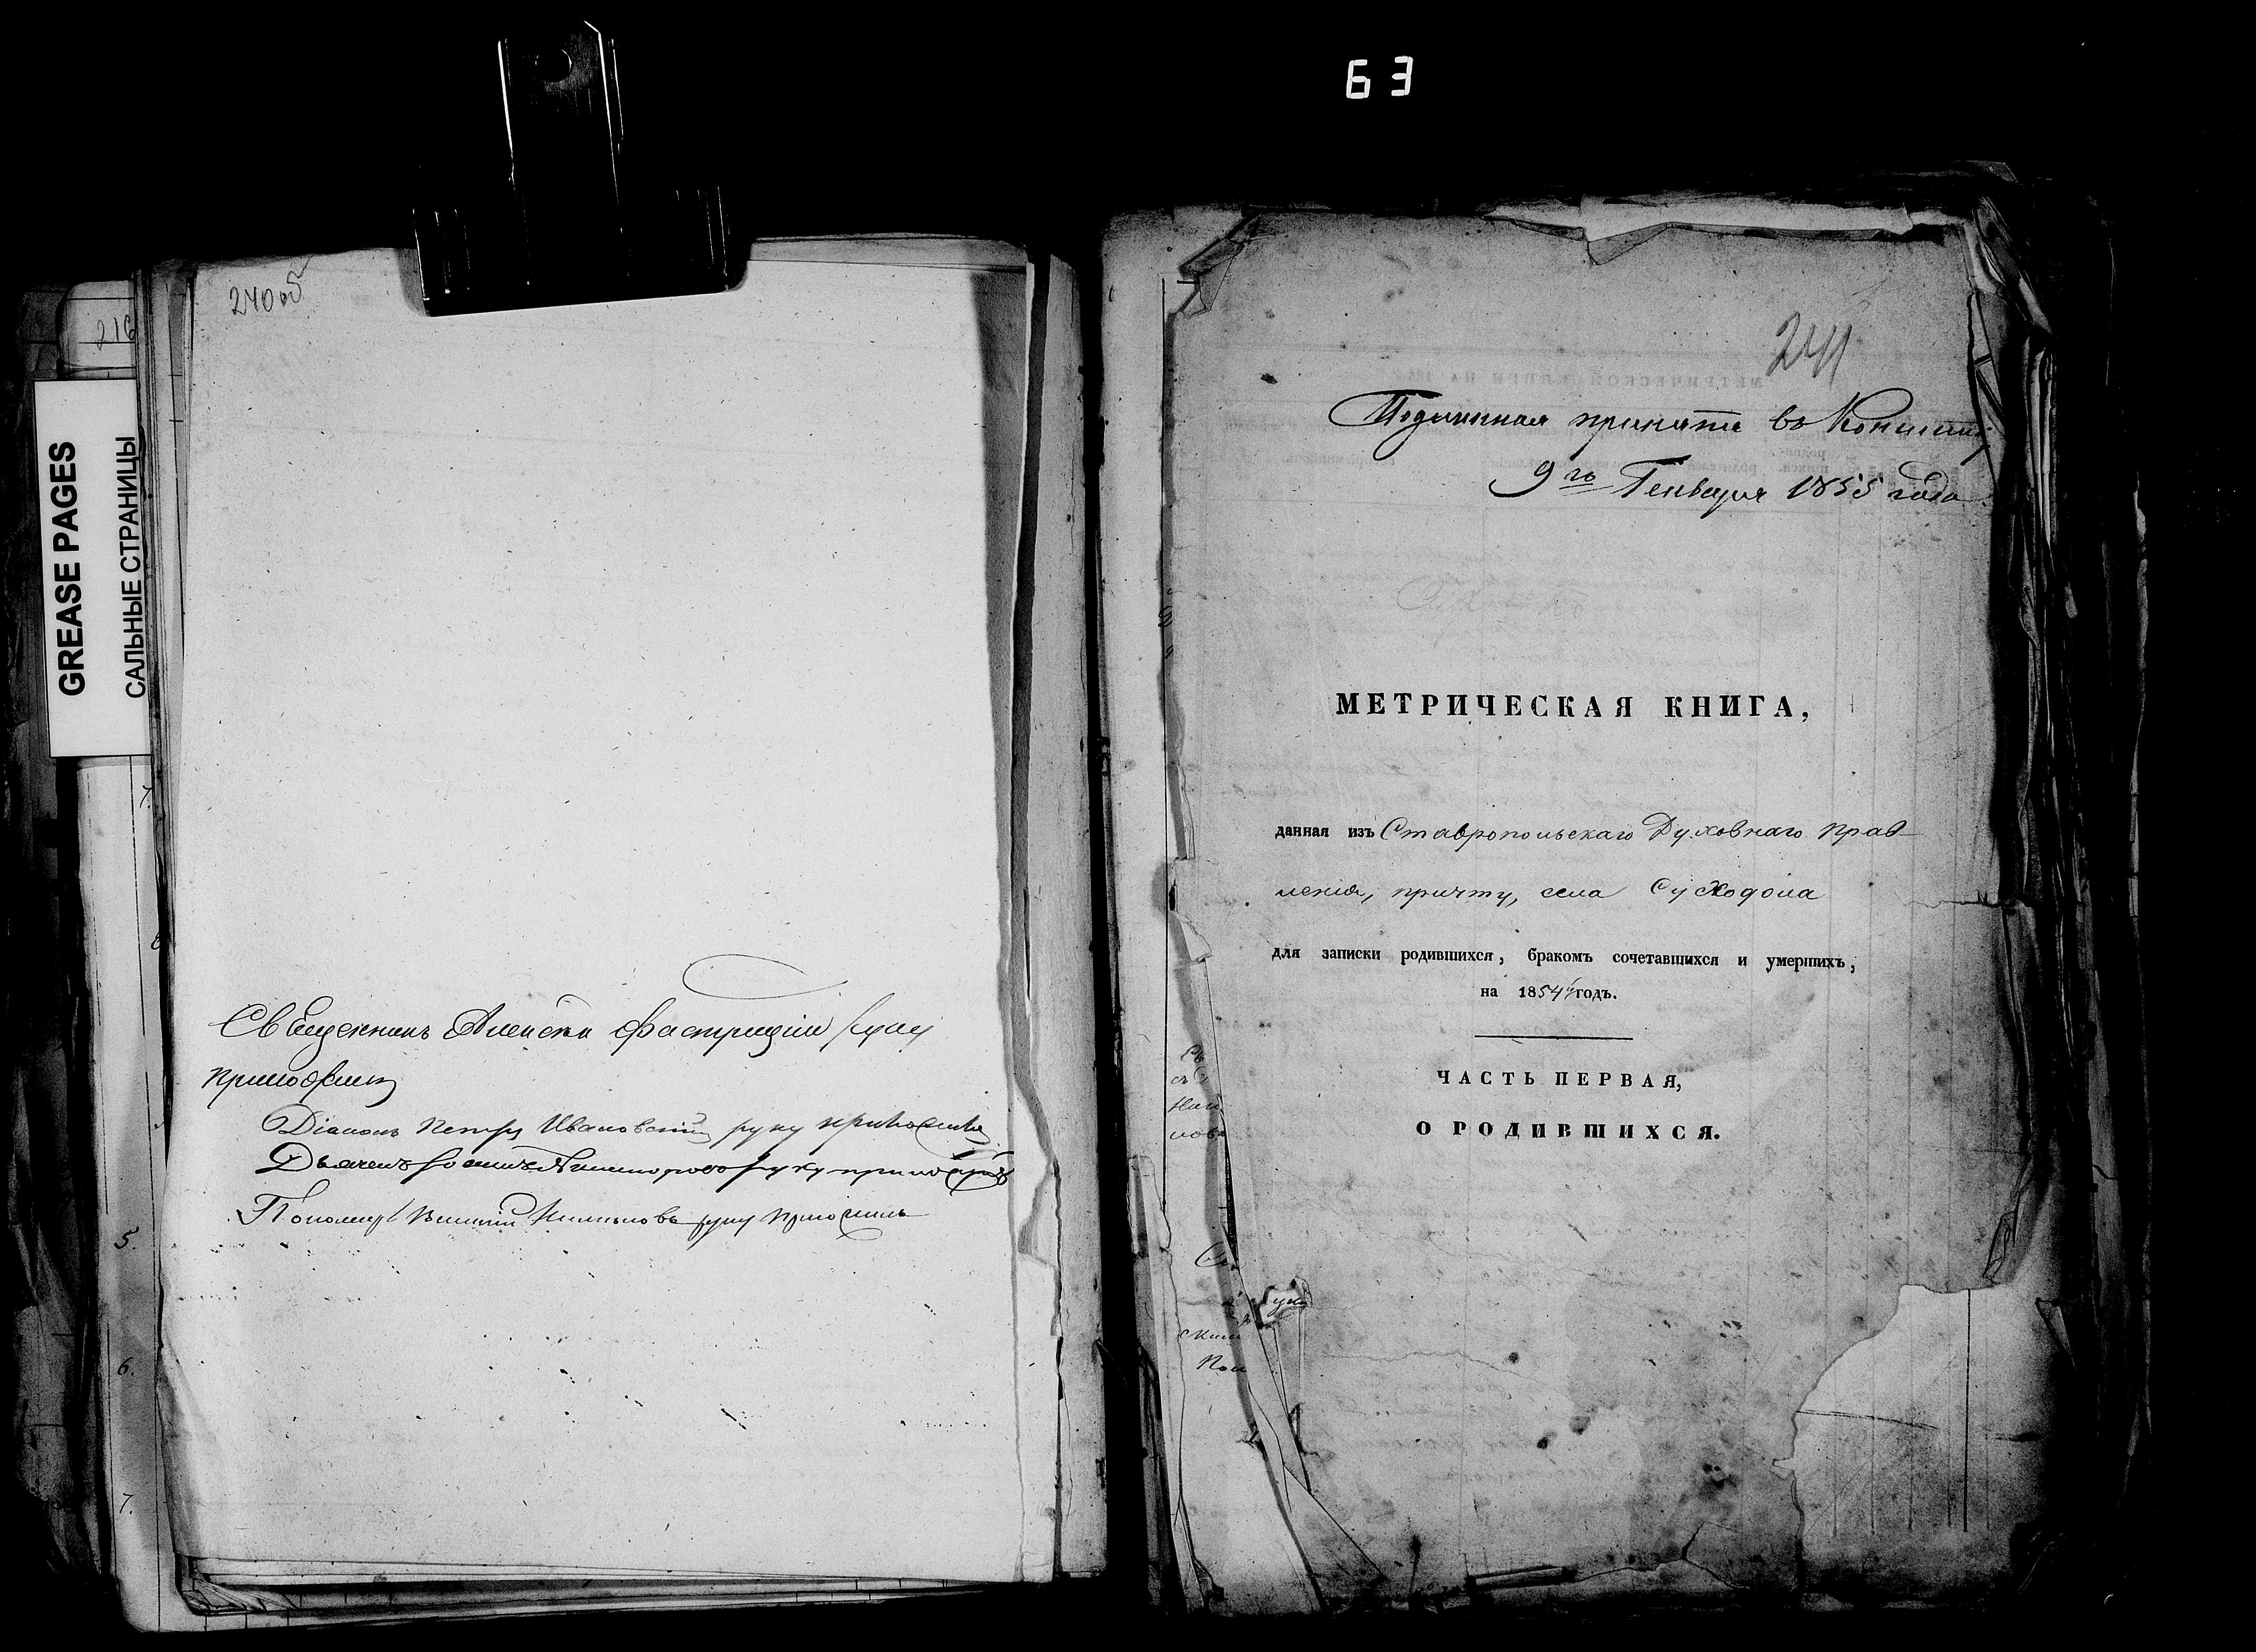 63
240об
216
GREASE PAGES
САЛЬНЫЕ СТРАНИЦЫ
Священникъ Алексѣй руку
приложилъ
Діаконъ Петръ Ивановскій руку приложилъ
Дьячекъ руку приложилъ
Пономарь руку приложилъ
5.
6.
7.
241
Подлинная принята въ
9го Генваря 1855 года
МЕТРИЧЕСКАЯ КНИГА,
данная изъ Ставропольскаго Духовнаго Прав-
ленія, причту, села Суходола
для записки родившихся, бракомъ сочетавшихся и умершихъ,
на 1854й годъ.
ЧАСТЬ ПЕРВАЯ,
О РОДИВШИХСЯ.